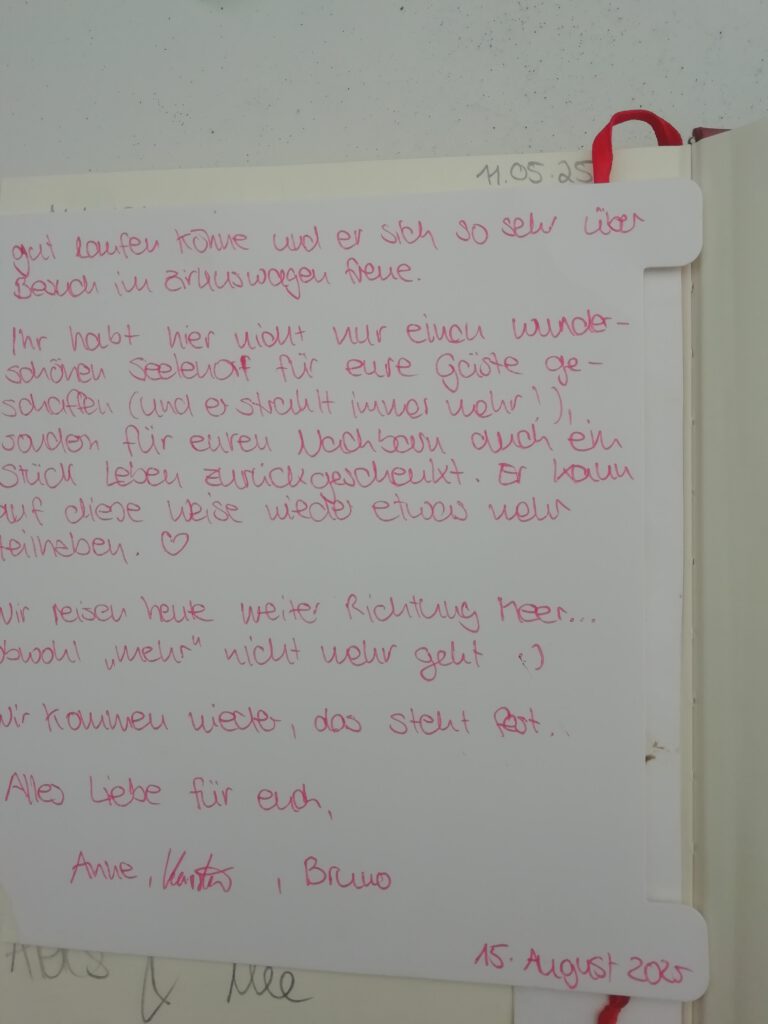 11.05.25
gut laufen könne und er sich so sehr über
Besuch im Zirkuswagen freue.
Ihr habt hier nicht nur einen wunder-
schönen Seelenort für eure Gäste ge-
schaffen (und er strahlt immer mehr!),
sondern für euren Nachbarn auch ein
Stück Leben zurückgeschenkt. Er kann
auf diese Weise wieder etwas mehr
teilhaben. ♡
Wir reisen heute weiter Richtung Meer...
obwohl „mehr“ nicht mehr geht :)
Wir kommen wieder, das steht fest...
Alles Liebe für euch,
Anne, Karsten, Bruno
15. August 2025